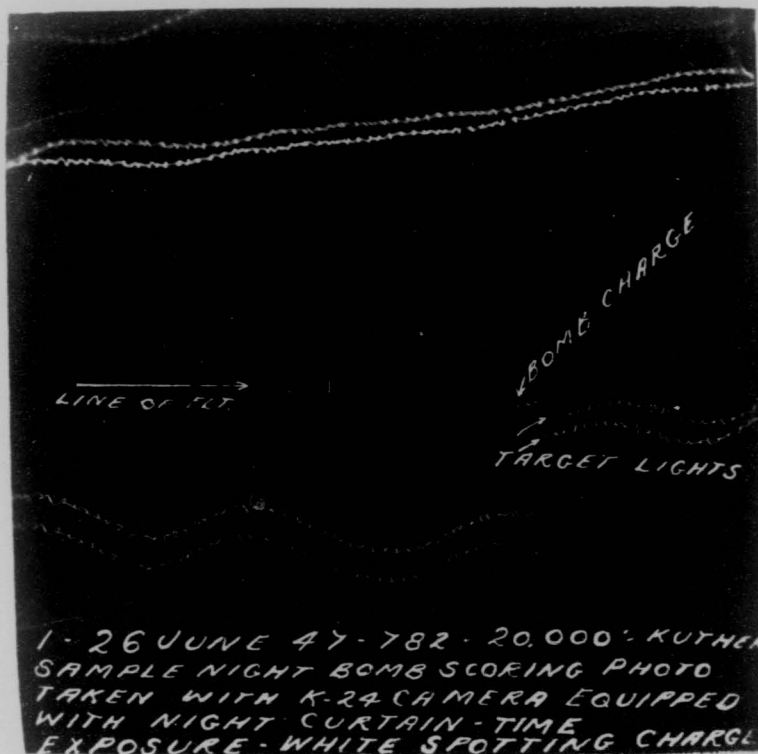 BOMB CHARGE
LINE OF FLT.
TARGET LIGHTS
1 - 26 JUNE 47 - 782 - 20,000' -
SAMPLE NIGHT BOMB SCORING PHOTO
TAKEN WITH K-24 CAMERA EQUIPPED
WITH NIGHT CURTAIN - TIME
EXPOSURE - WHITE SPOTTING CHARGE